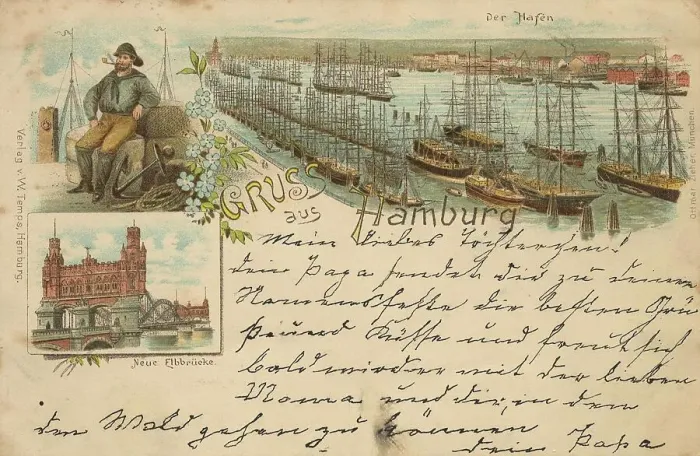 Der Hafen
Gruss
aus
Hamburg
Neue Elbbrücke.
Verlag v. W. Temps, Hamburg.
Mein liebes Töchterchen!
dein Papa sendet dir zu deinem
Namensfeste die besten Grü
ße und Küsse und freut sich
bald wieder mit der lieben
Mama und dir, in den
den Wald gehen zu können
dein Papa